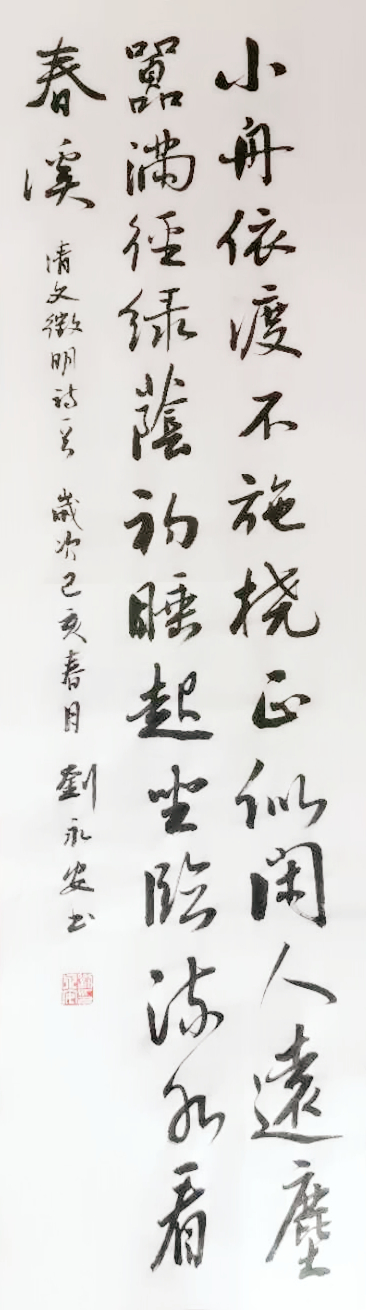 小舟依渡不施桡正似闲人遠塵
嚣满径绿蔭初睡起坐臨流水看
春溪
清文徵明诗一首 歲次己亥春月 劉永安书